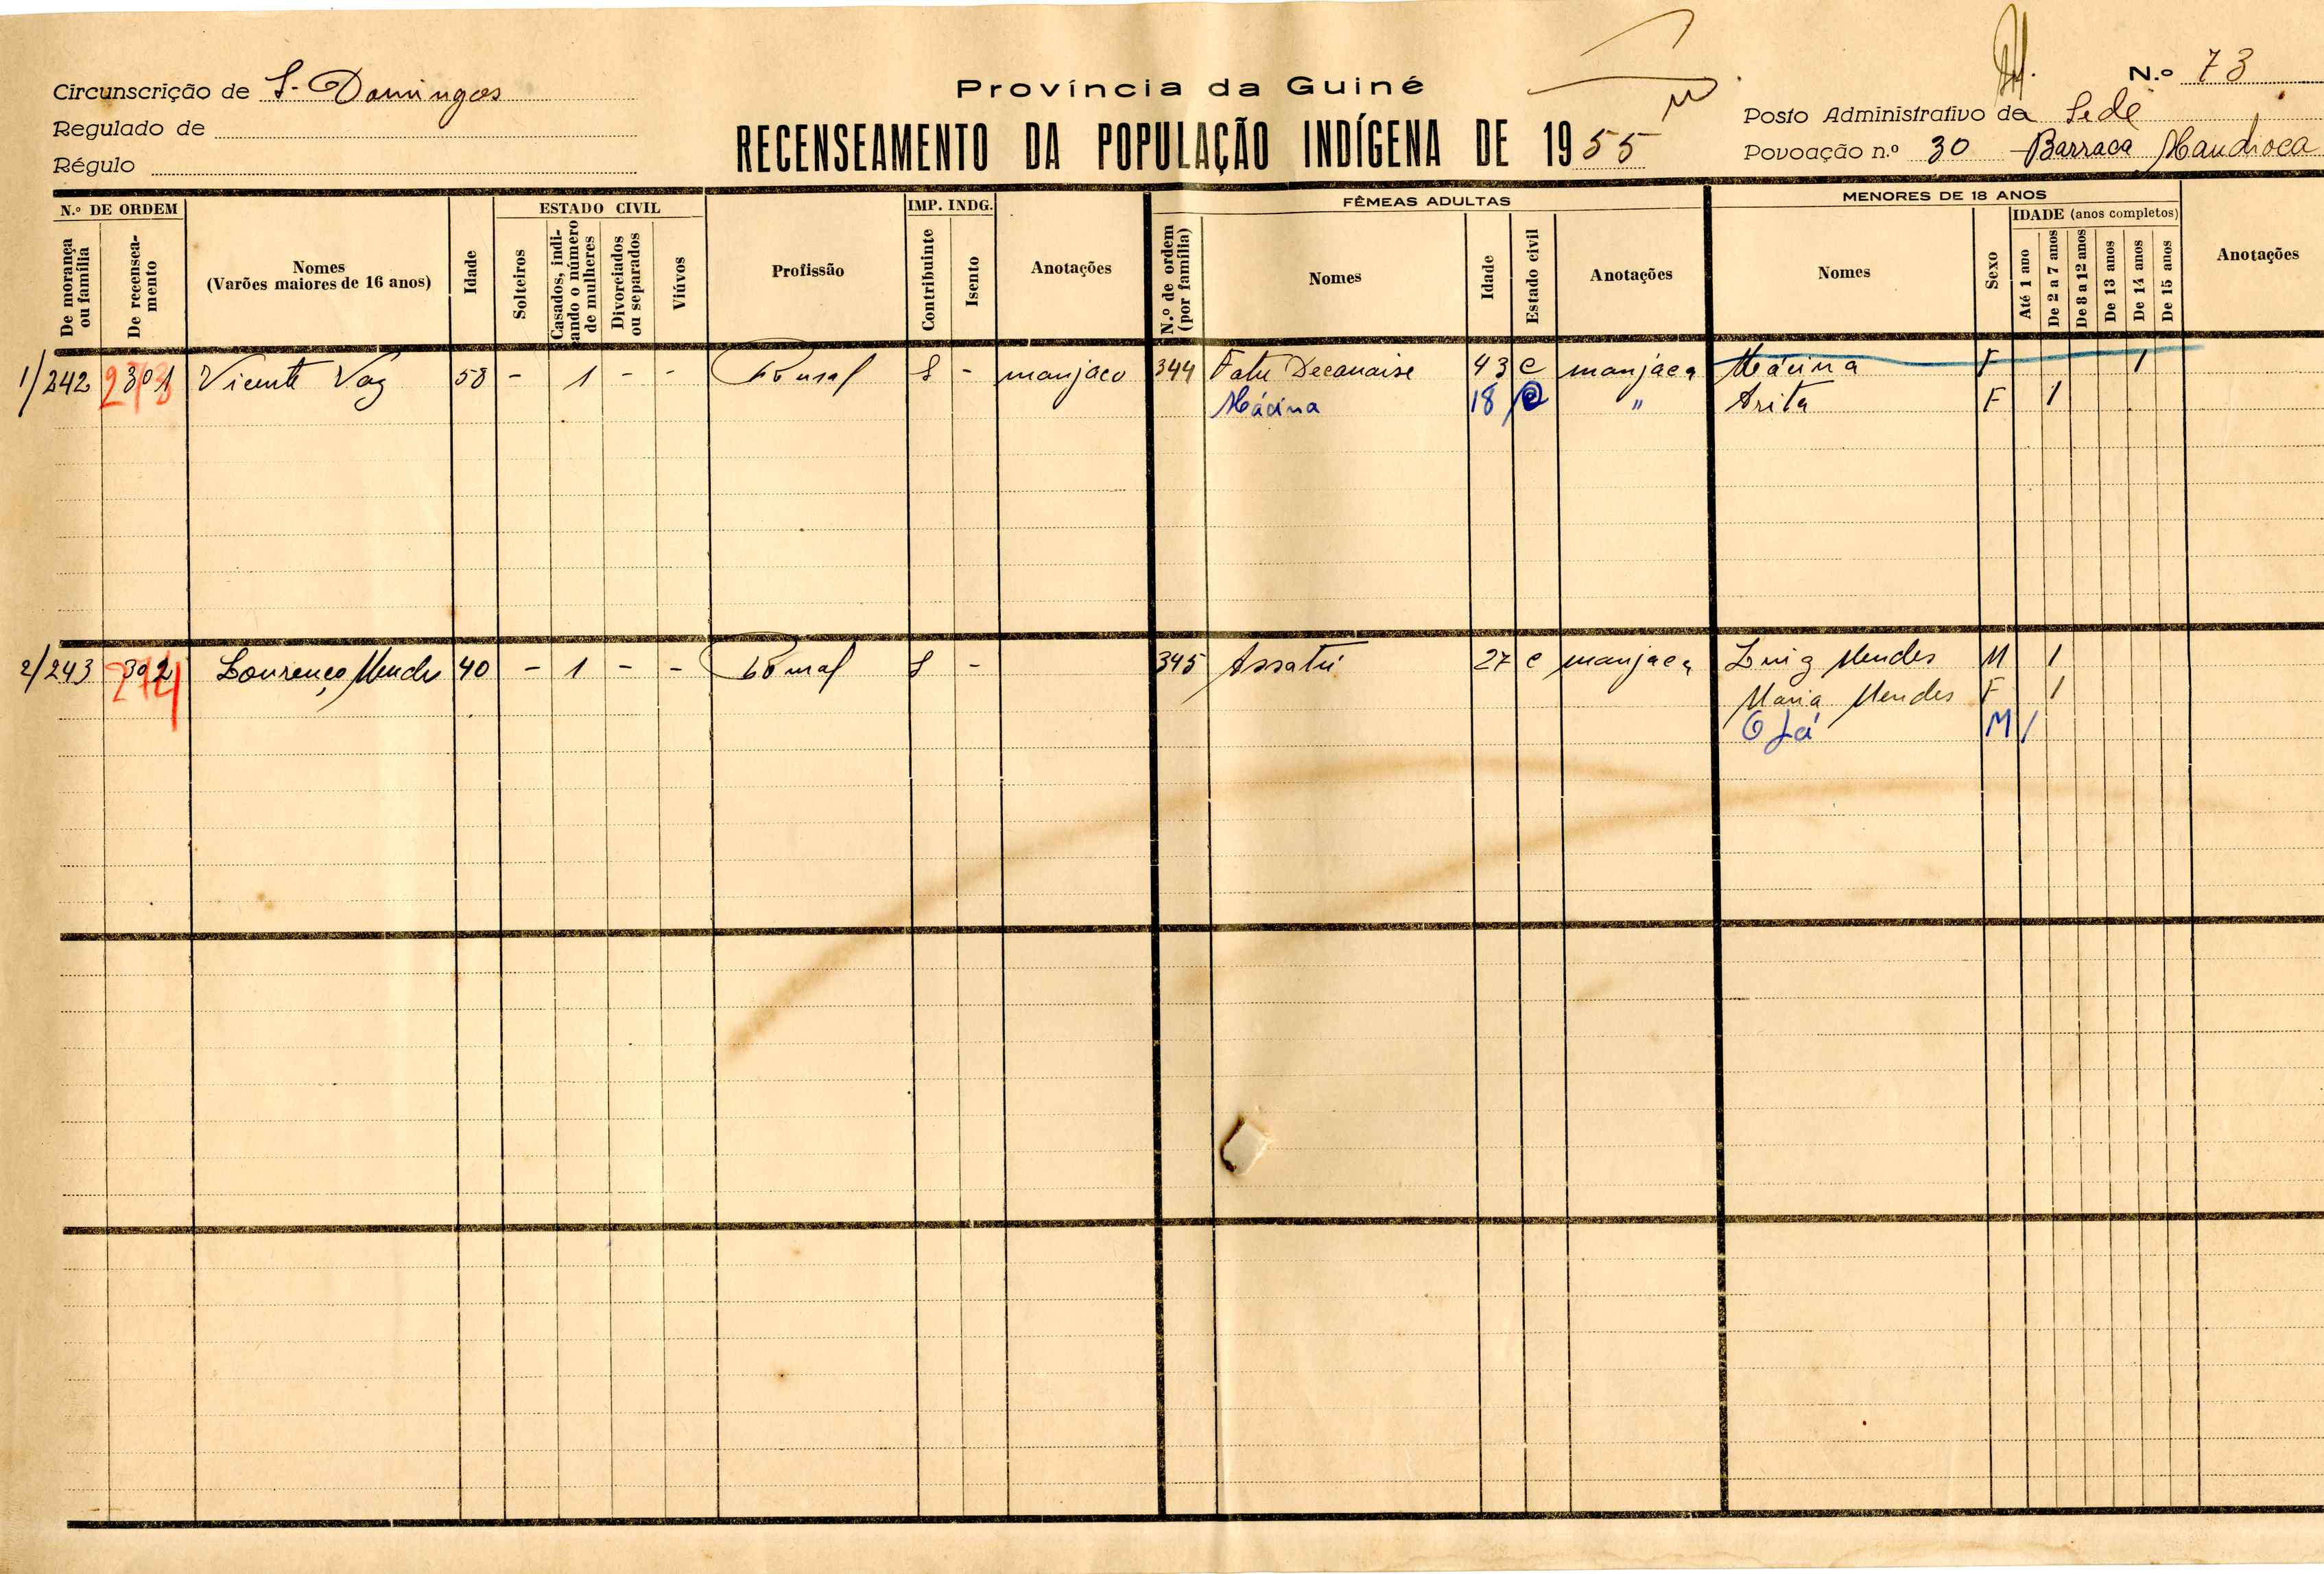 Circunscrição de S. Domingos
Regulado de
Régulo
Província da Guiné
RECENSEAMENTO DA POPULAÇÃO INDÍGENA DE 1955
N.º 73
Posto Administrativo da Sede
Povoação n.º 30 Barraca Mandioca
N.º DE ORDEM
De morança ou família
De recenseamento
Nomes
(Varões maiores de 16 anos)
Idade
ESTADO CIVIL
Solteiros
Casados, indicando o número de mulheres
Divorciados ou separados
Viúvos
Profissão
IMP. INDG.
Contribuinte
Isento
Anotações
FÊMEAS ADULTAS
N.º de ordem (por família)
Nomes
Idade
Estado civil
Anotações
MENORES DE 18 ANOS
Nomes
Sexo
IDADE (anos completos)
Até 1 ano
De 2 a 7 anos
De 8 a 12 anos
De 13 anos
De 14 anos
De 15 anos
Anotações
1/242 301 273 Vicente Vaz 58 - 1 - - - manjaco 344 43 C manjaca Mácina F 1
Mácina 18 C " Arita F 1
2/243 302 274 Lourenço Mendes 40 - 1 - - - 345 Assatú 27 C manjaca Luiz Mendes M 1
Maria Mendes F 1
M /